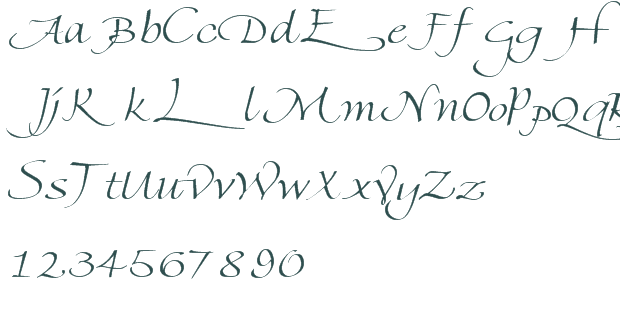 Aa Bb Cc Dd E e Ff Gg H
Jj K k L l Mm Nn Oo Pp Qq R
Ss T t Uu Vv Ww X x Yy Zz
1234567890